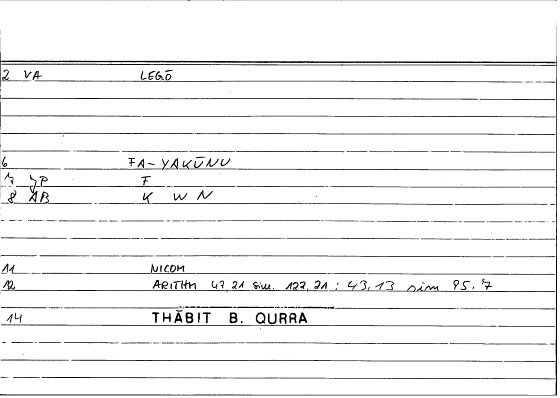 2 VA LEGŌ
6 FA-YAKŪNU
7 F
8 AB K W N
11 NICOM
12 ARITHM 47,21 sim. 122,21; 43,13 sim 95,7
14 THĀBIT B. QURRA